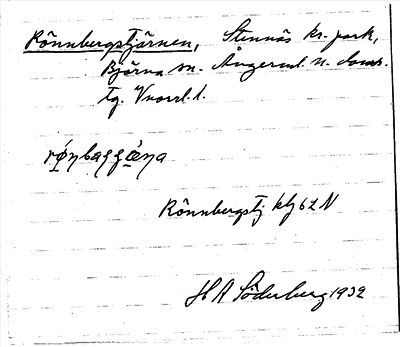 Rönnbergstjärnen, Stennäs kr. park,
Björna sn. Ångerml. n. doms.
tg. V nord 1.
Rönnbergstj klj 62 N
H A Söderberg 1932